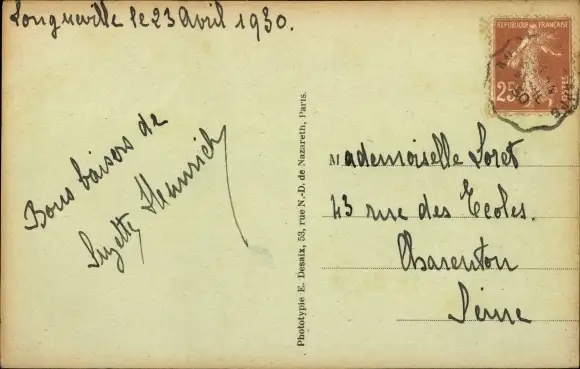 Longueville le 23 Avril 1930.
REPUBLIQUE FRANÇAISE
25
POSTES
Bons baisers de
Suzette Heinrich
Phototypie E. Desaix, 53, rue N.-D. de Nazareth, Paris.
Mademoiselle Loret
43 rue des Ecoles.
Charenton
Seine